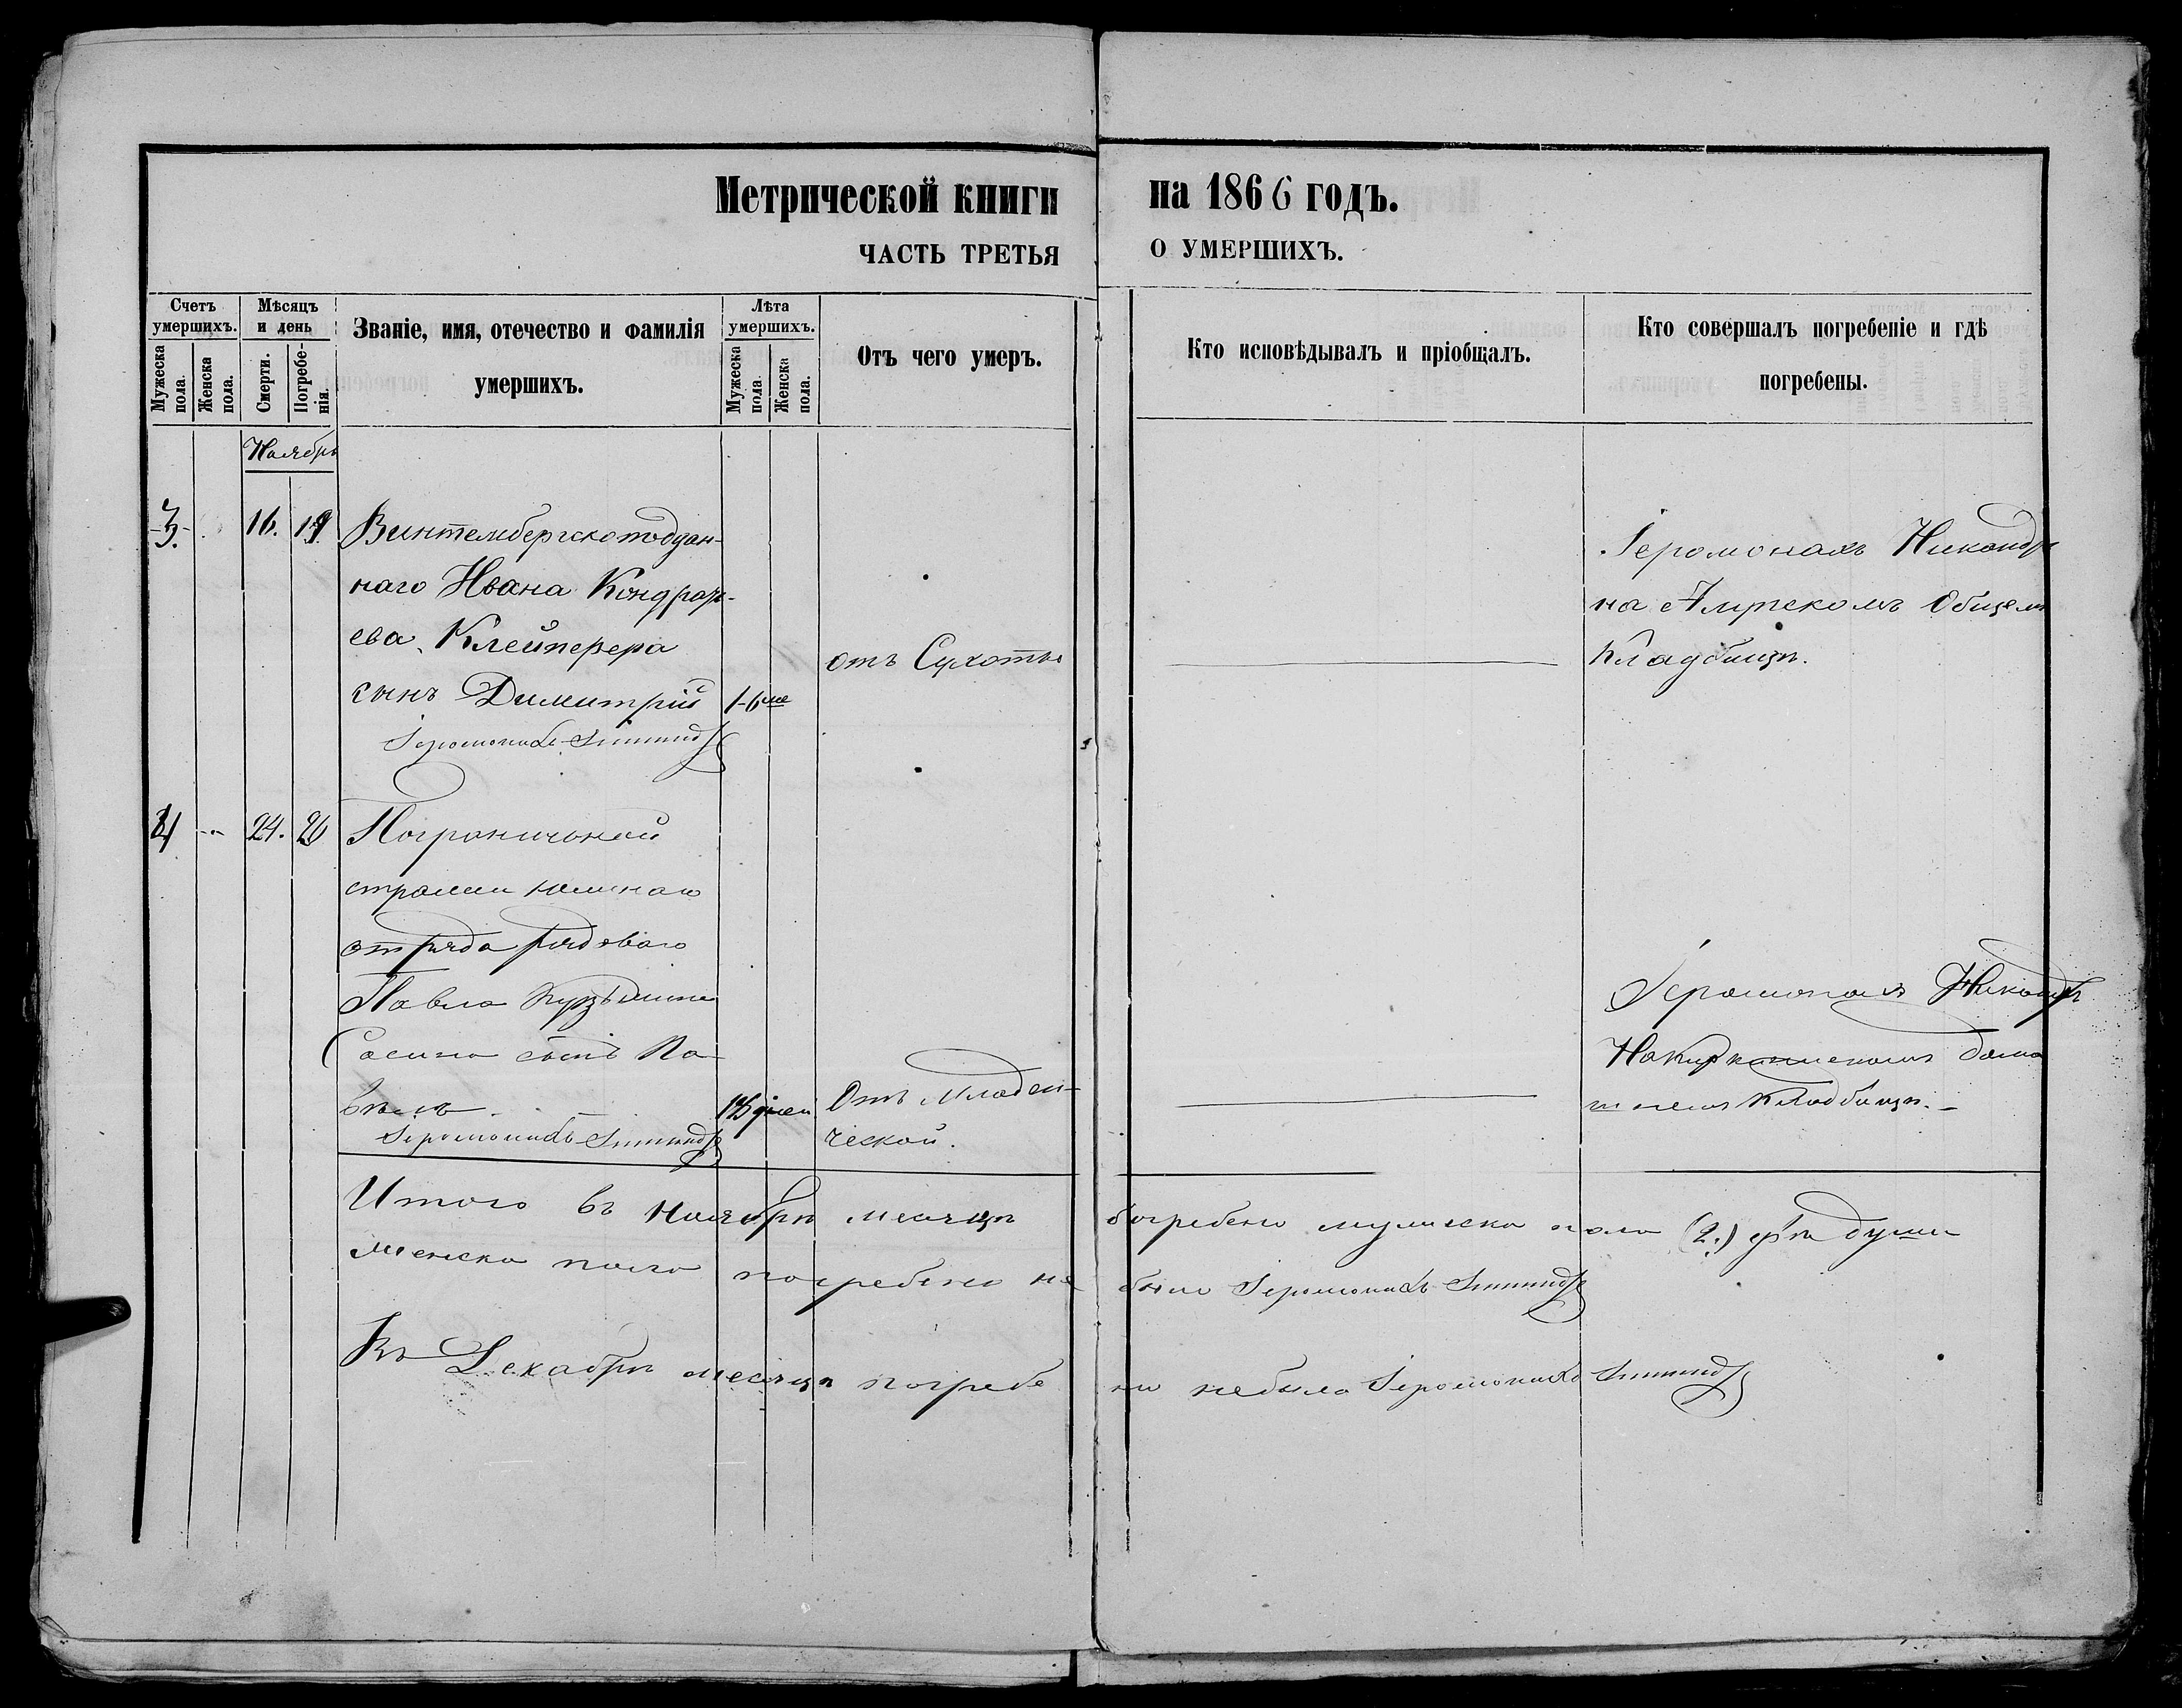 Метрической книги на 1866 годъ.
ЧАСТЬ ТРЕТЬЯ О УМЕРШИХЪ.
Счетъ умершихъ.
Мужеска пола.
Женска пола.
Мѣсяцъ и день
Смерти.
Погребенія.
Званіе, имя, отечество и фамилія
умершихъ.
Лѣта умершихъ.
Мужеска пола
Женска пола.
Отъ чего умеръ.
Кто исповѣдывалъ и пріобщалъ.
Кто совершалъ погребеніе и гдѣ
погребены.
Ноябрь
3. 16. 19
наго Ивана Кондрать-
ева Клейперера
сынъ Димитрій
Іеромонахъ
отъ Сухоты
Іеромонахъ Никандръ
на общемъ
Кладбищѣ.
4 24. 26 Пограничной
стражи
отряда рядоваго
Павла Кузьмина
сынъ Па-
велъ
Іеромонахъ
дней
Отъ Младен-
ческой.
Іеромонахъ Никандръ
Кладбищѣ.
Итого въ Ноябрѣ месяцѣ погребено мужеска пола (2.) двѣ души
Женска пола погребено не было Іеромонахъ
Въ Декабрѣ месяцѣ погребе
но небыло Іеромонахъ